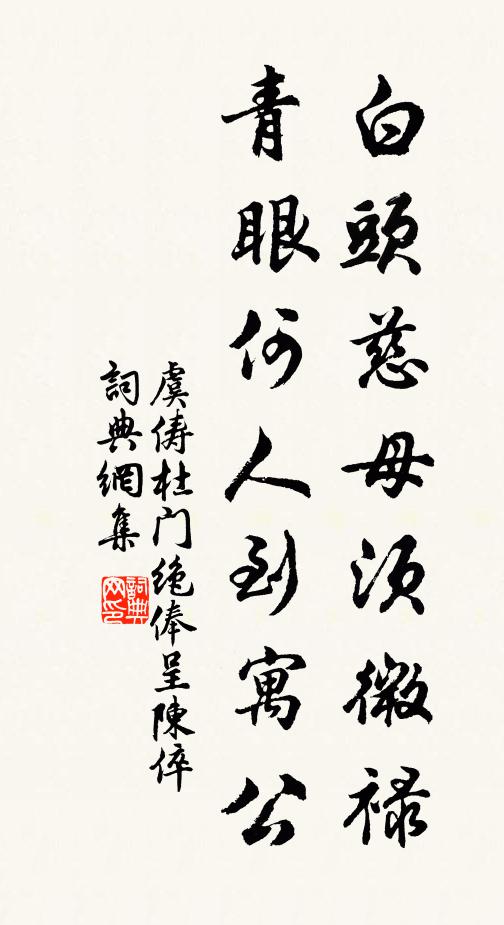 白頭慈母須微祿
青眼何人到寓公
虞儔杜门絶俸呈陳倅
詞典網集
詞典网印